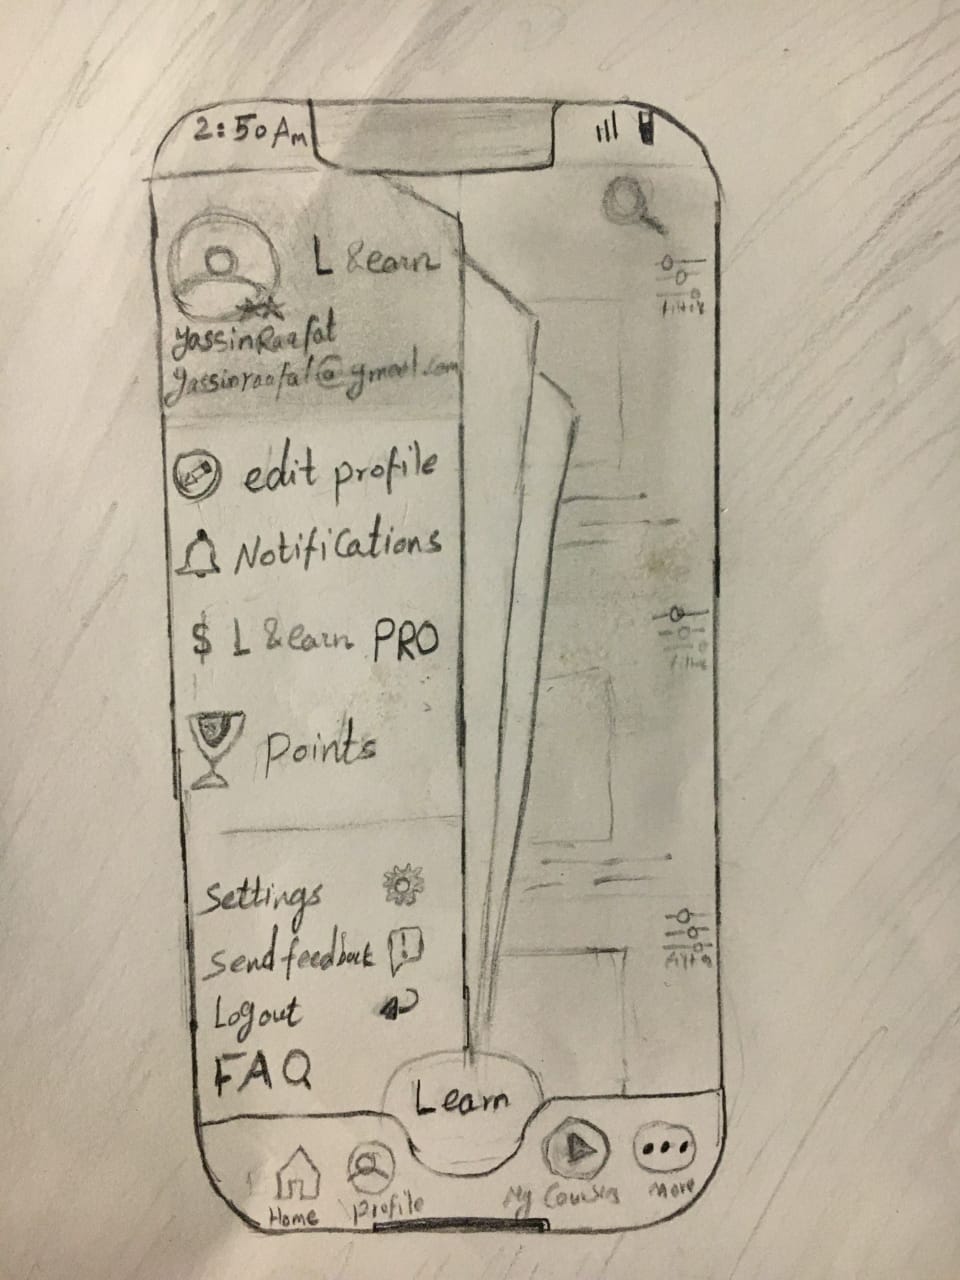 2:50 Am
L &earn
YassinRaafat
yassinraafat@gmail.com
filter
edit profile
Notifications
$ L &earn PRO
filter
Points
Settings
Send feedback
Logout
FAQ
Learn
Home
Profile
My Courses
More